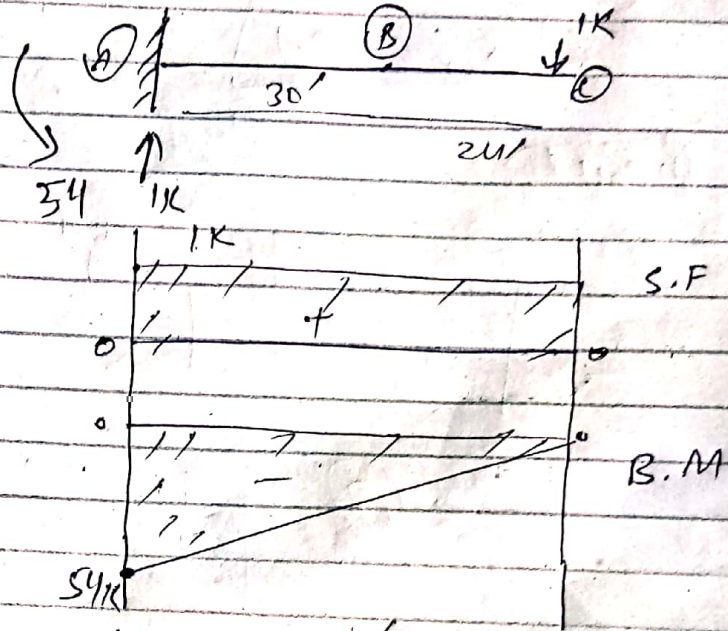 1K
A B C
30'
24'
54 1K
1K
S.F
+
0 0
0 0
B.M
-
54K